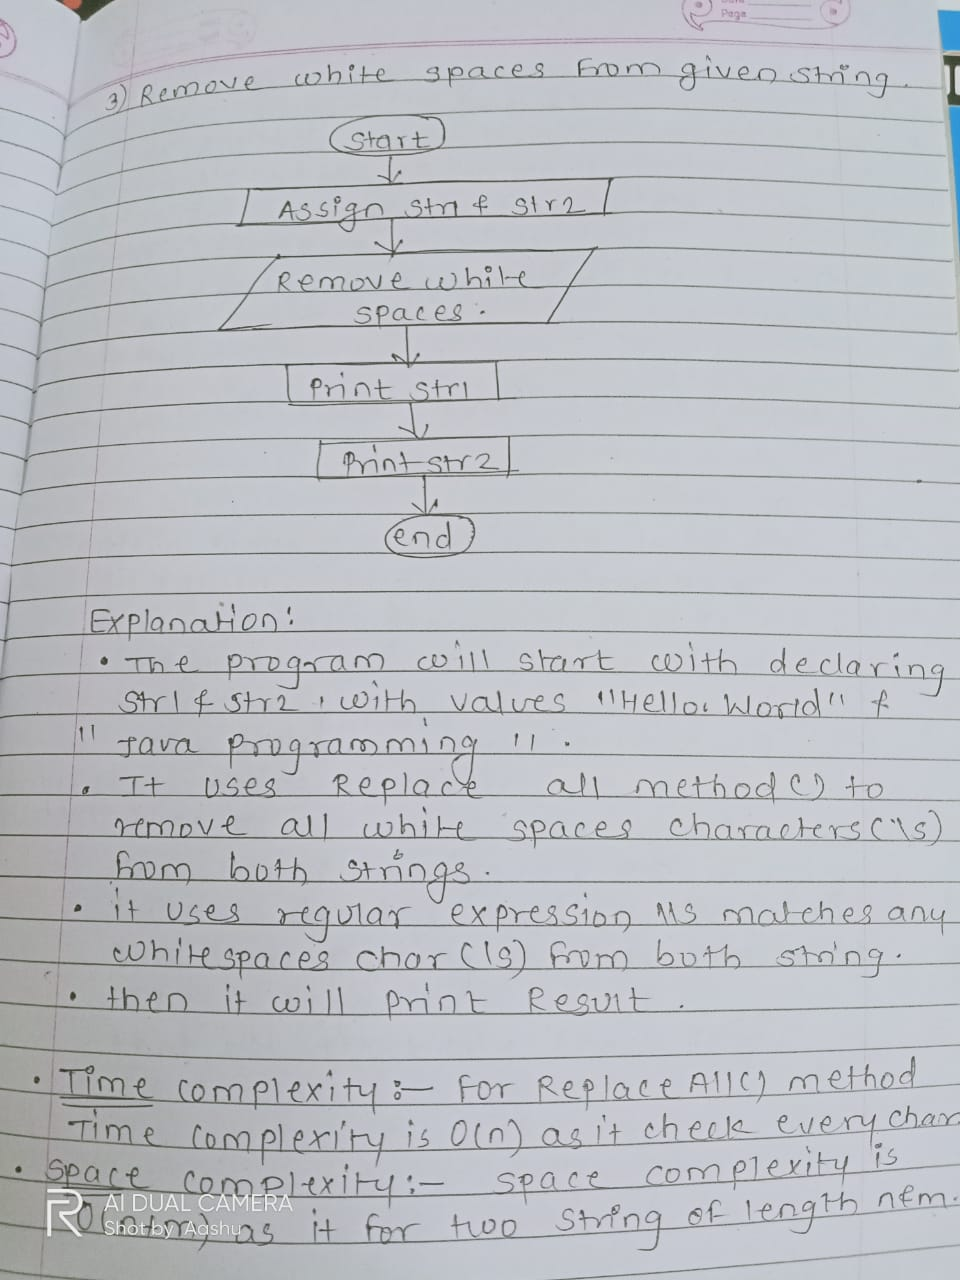 Page
3) Remove white spaces from given string.
Start
Assign str1 & str2
Remove white
spaces.
Print str1
Print str2
end
Explanation:
• The program will start with declaring
str1 & str2, with values "Hello World" &
" Java programming ".
• It uses Replace all method() to
remove all white spaces characters (\s)
from both strings.
• it uses regular expression \\s matches any
whitespaces char (\s) from both string.
• then it will print Result.
• Time complexity :- For ReplaceAll() method
Time complexity is O(n) as it check every char
• Space complexity :- space complexity is
as it for two string of length n&m.
AI DUAL CAMERA
Shot by Aashu